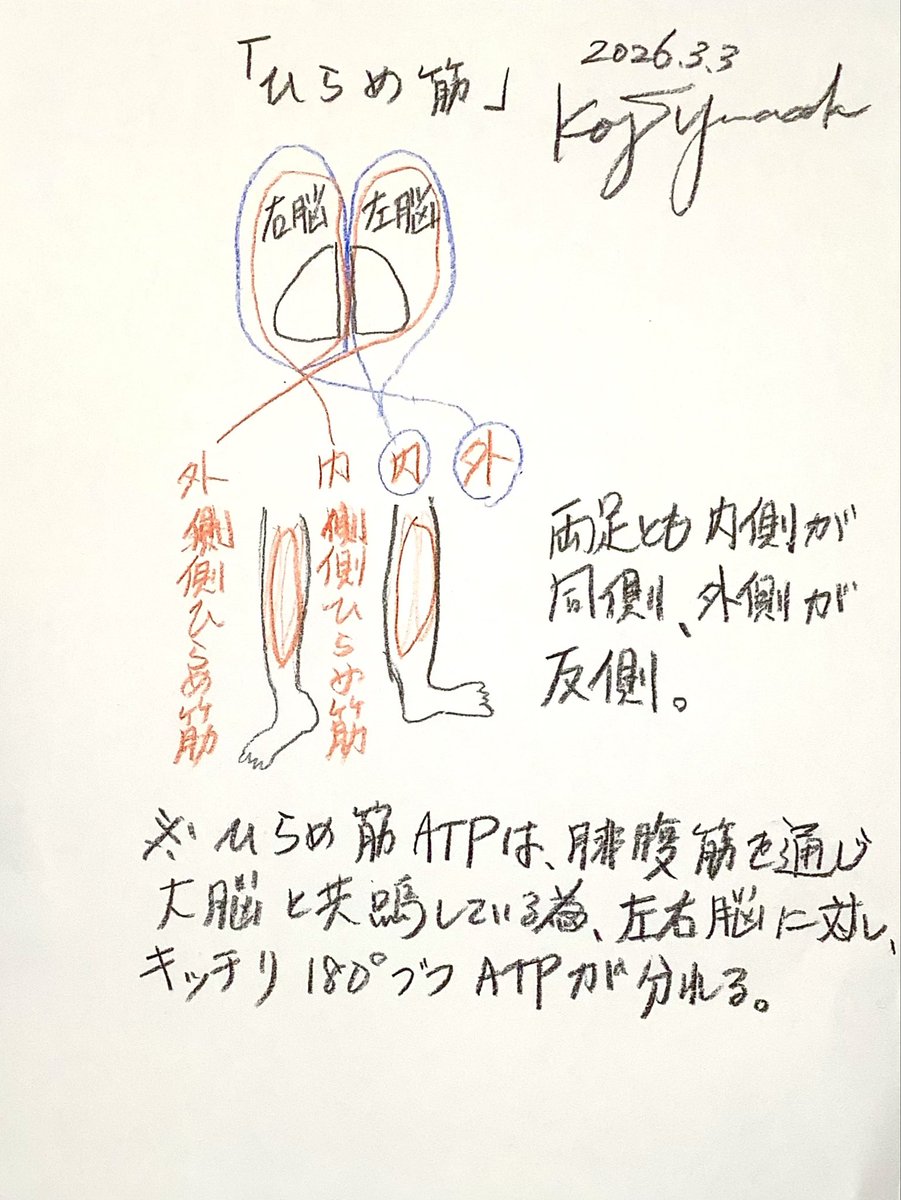 「ひらめ筋」
2026.3.3
右脳
左脳
外側側ひらめ筋
内側側ひらめ筋
内
外
両足とも内側が
同側、外側が
反側。
※ひらめ筋ATPは、腓腹筋を通じ
大脳と共鳴している為、左右脳に対し、
キッチリ180°づつATPが分れる。